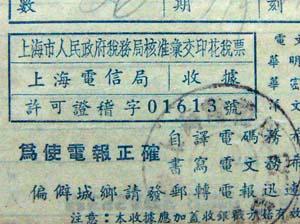 數
期
刻
上海市人民政府稅務局核准彙交印花稅票
上海電信局 收據
許可證稽字01613號
為使電報正確
自譯電碼
書寫電文
偏僻城鄉請發郵轉電報迅
注意：本收據應加蓋收銀